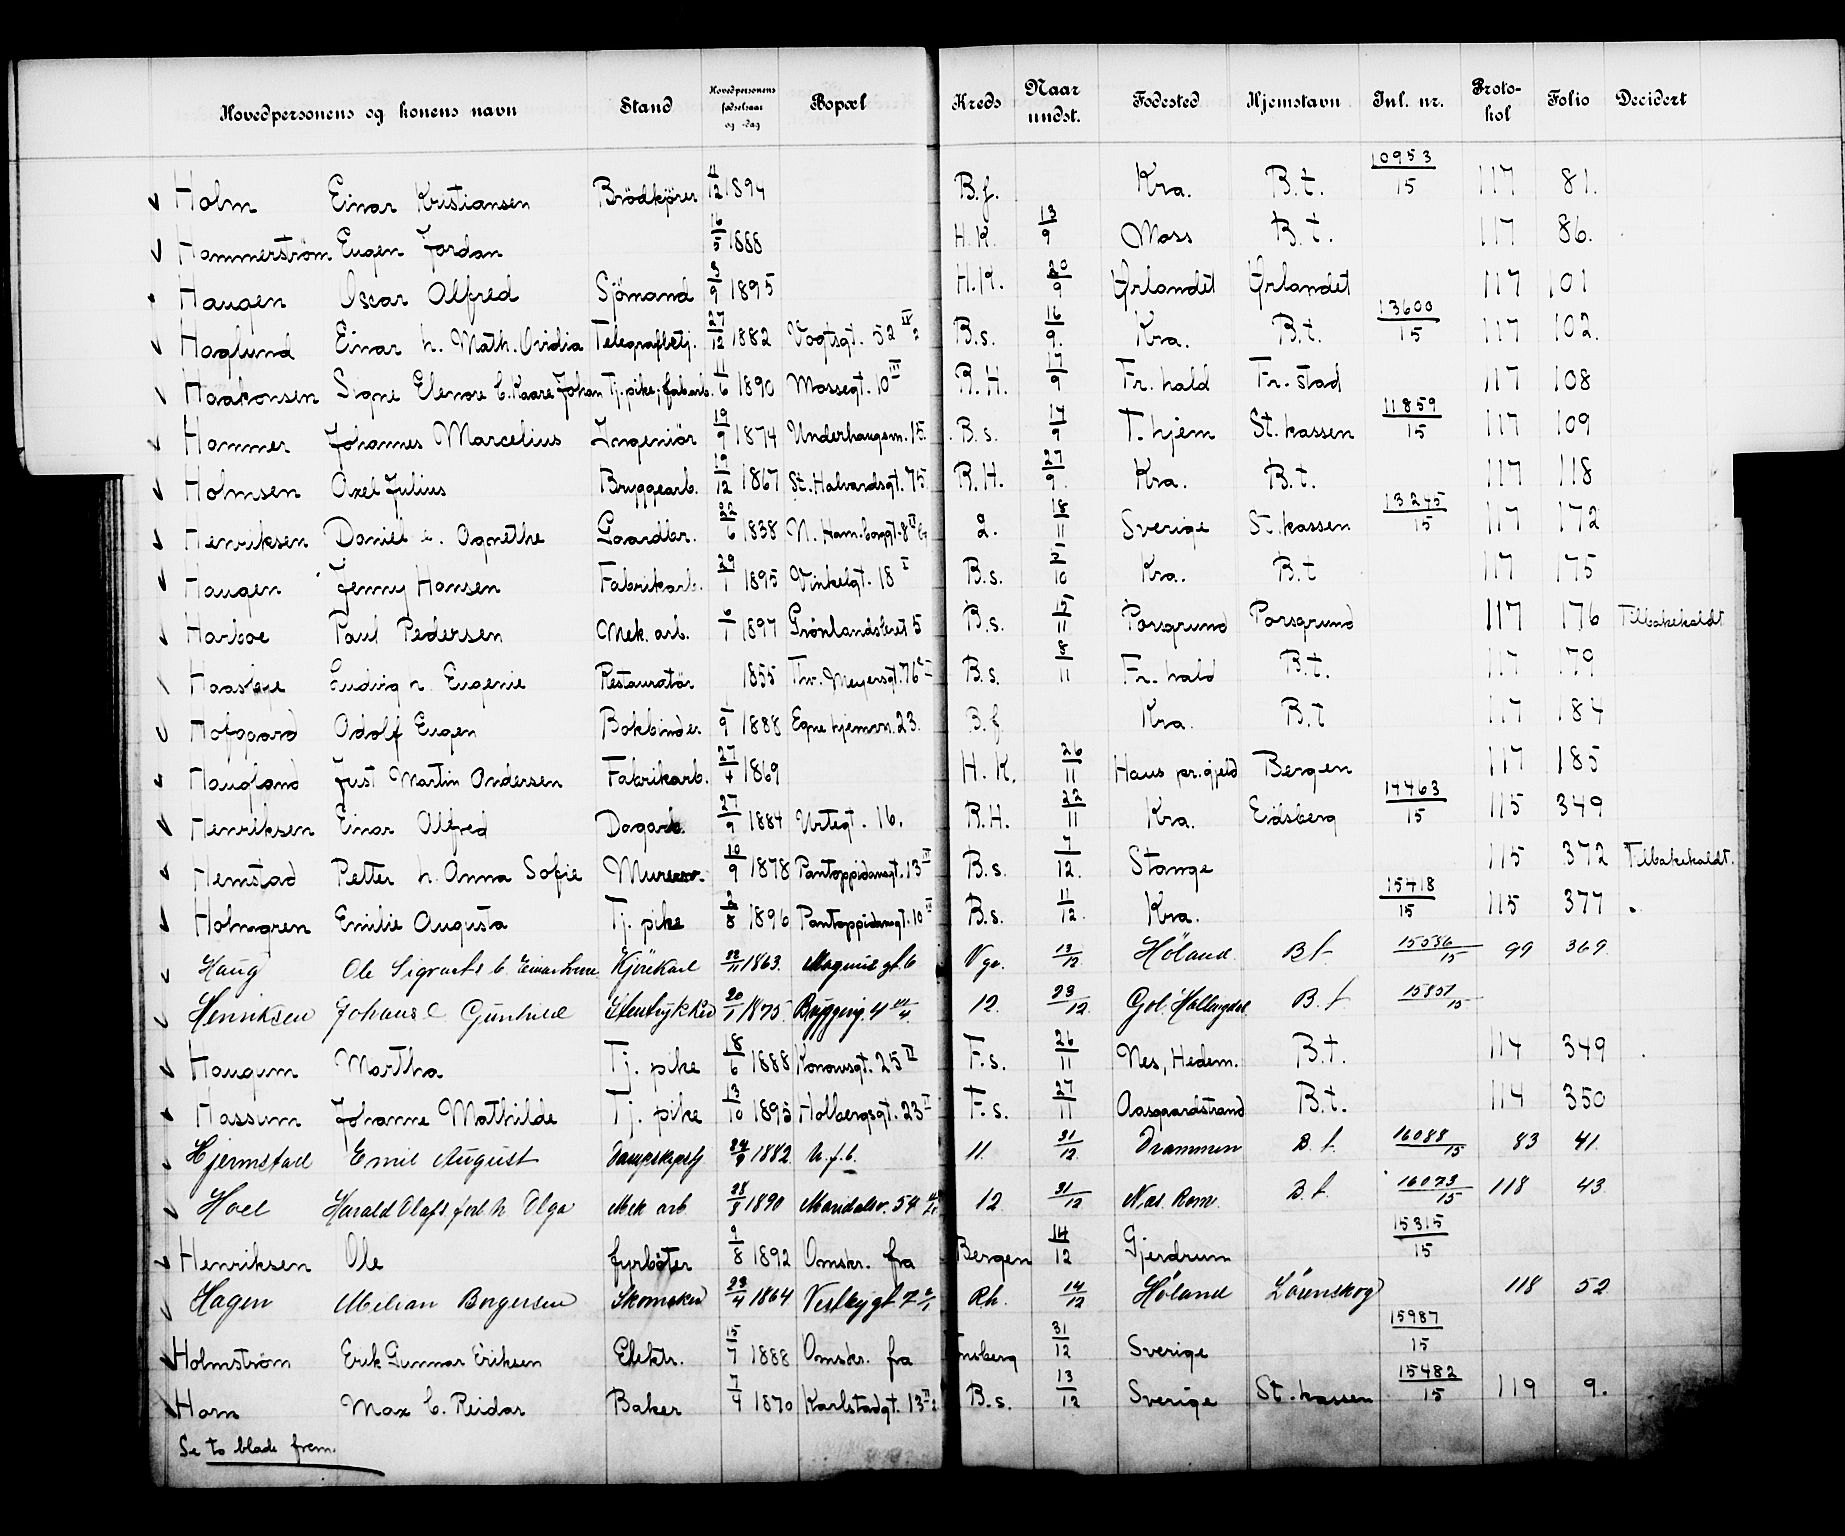 Hovedpersonens og konens navn Stand Hovedpersonens fødselsaar og -dag Bopæl Kreds Naar undst. Fødested Hjemstavn Jnl. nr. Protokol Folio Decidert
Holm Einar Kristiansen Brödkjører 12 1894 B.f. Kra. B.t. 10953/15 117 81.
Hammerström Eugen Jordan 16/5 1888 H.K. 13/9 Moss B.t. 117 86.
Haugen Oscar Alfred Sjömand 8/9 1895 H.K. 20/9 Ørlandet Ørlandet 117 101
Haglund Einar h. Math. Ovidia Telegrafbetj. 27/12 1882 Vogtsgt. 52 IV 2 B.s. 16/9. Kra. B.t. 13600/15 117 102.
Haakonsen Signe Elenore b. Kaare Johan Tj. pike, fabarb. 11/6 1890 Mossegt. 10 III R.H. 17/9 Fr. hald Fr. stad 117 108
Hammer Johannes Marcelius Ingeniör 19/9 1874 Underhaugsvn. 15. B.s. 17/9 T. hjem St. kassen 11859/15 117 109
Holmsen Axel Julius Bryggearb. 19/12 1867 St. Halvardsgt. 75. R.H. 27/9. Kra. B.t. 117 118
Henriksen Daniel e. Agnethe Gaardbr. 22/6 1838 N. Ham.borggt. 8 II 2. 18/11 Sverige St. kassen 13245/15 117 172
Haugen Jenny Hansen Fabrikarb. 29/1 1895 Vinkelgt. 18 I B.s. 2/10 Kra. B.t 117 175
Harboe Paul Pedersen Mek. arb. 6/1 1897 Grönlandsleret 5 B.s. 15/11 Porsgrund Porsgrund 117 176 Tilbakekaldt
Ludvig h. Eugenie Restauratör 1855 Thv. Meyersgt. 76 B.s. 8/11 Fr. hald B.t. 117 179
Hofgaard Adolf Eugen Bokbinder 1/9 1888 Egne hjemvn. 23. B.f Kra. B.t 117 184
Haugland Just Martin Andersen Fabrikarb. 27/4 1869 H.K. 26/11 Haus pr.gjeld Bergen 117 185
Henriksen Einar Alfred Dagarb. 27/9 1884 Urtegt. 16. R.H. 22/11 Kra. Eidsberg 14463/15 115 349
Hemstad Petter h. Anna Sofie Murer 10/9 1878 Pantoppidansgt. 13 IV B.s. 7/12. Stange 115 372 Tilbakekaldt.
Holmgren Emilie Augusta Tj. pike 2/8 1896 Pantoppidansgt. 10 II B.s. 11/12. Kra. 15418/15 115 377
Haug Ole Sigvarts b. Kjörekarl 22/11 1863. Magnus gt. 6 Vga. 13/12 Höland B t 15536/15 99 369.
Henriksen Johans e Gunhild 20/1 1875 12. 23/12. Gol. Hallingdal B. t 15851/15
Haugum Martha Tj. pike 18/6 1888 Konowsgt. 25 II F.s. 26/11 Nes, Hedem. B.t. 114 349
Hassum Johanne Mathilde Tj. pike 13/10 1895 Holbergsgt. 23 II F.s. 27/11 Aasgaardstrand B.t. 114 350
Hjermstad Emil August 24/9 1882. U.f.b. 11. 31/12. Drammen B. t. 16088/15 83 41.
Hoel Harald Olafs fork h Olga Mek arb 28/8 1890 Maridalsv. 54 12 31/12 Nes. Rom. B.t. 16073/15 118 43
Henriksen Ole fyrböter 9/8 1892 Omskr. fra Bergen 14/12 Gjerdrum 15315/15
Hagen Melvan Borgersen Skomaker 23/4 1864 Vestbygt 7 2/1 Rh. 14/12 Höland Lörenskog 118 52
Holmström Erik Gunnar Eriksen Elektr. 15/7 1888 Omskr. fra nsberg 31/12 Sverige 15987/15
Horn Max b. Reidar Baker 7/4 1870 Karlstadgt. 13 II 2 B.s. 13/12 Sverige St. kassen 15482/15 119 9.
Se to blade frem.